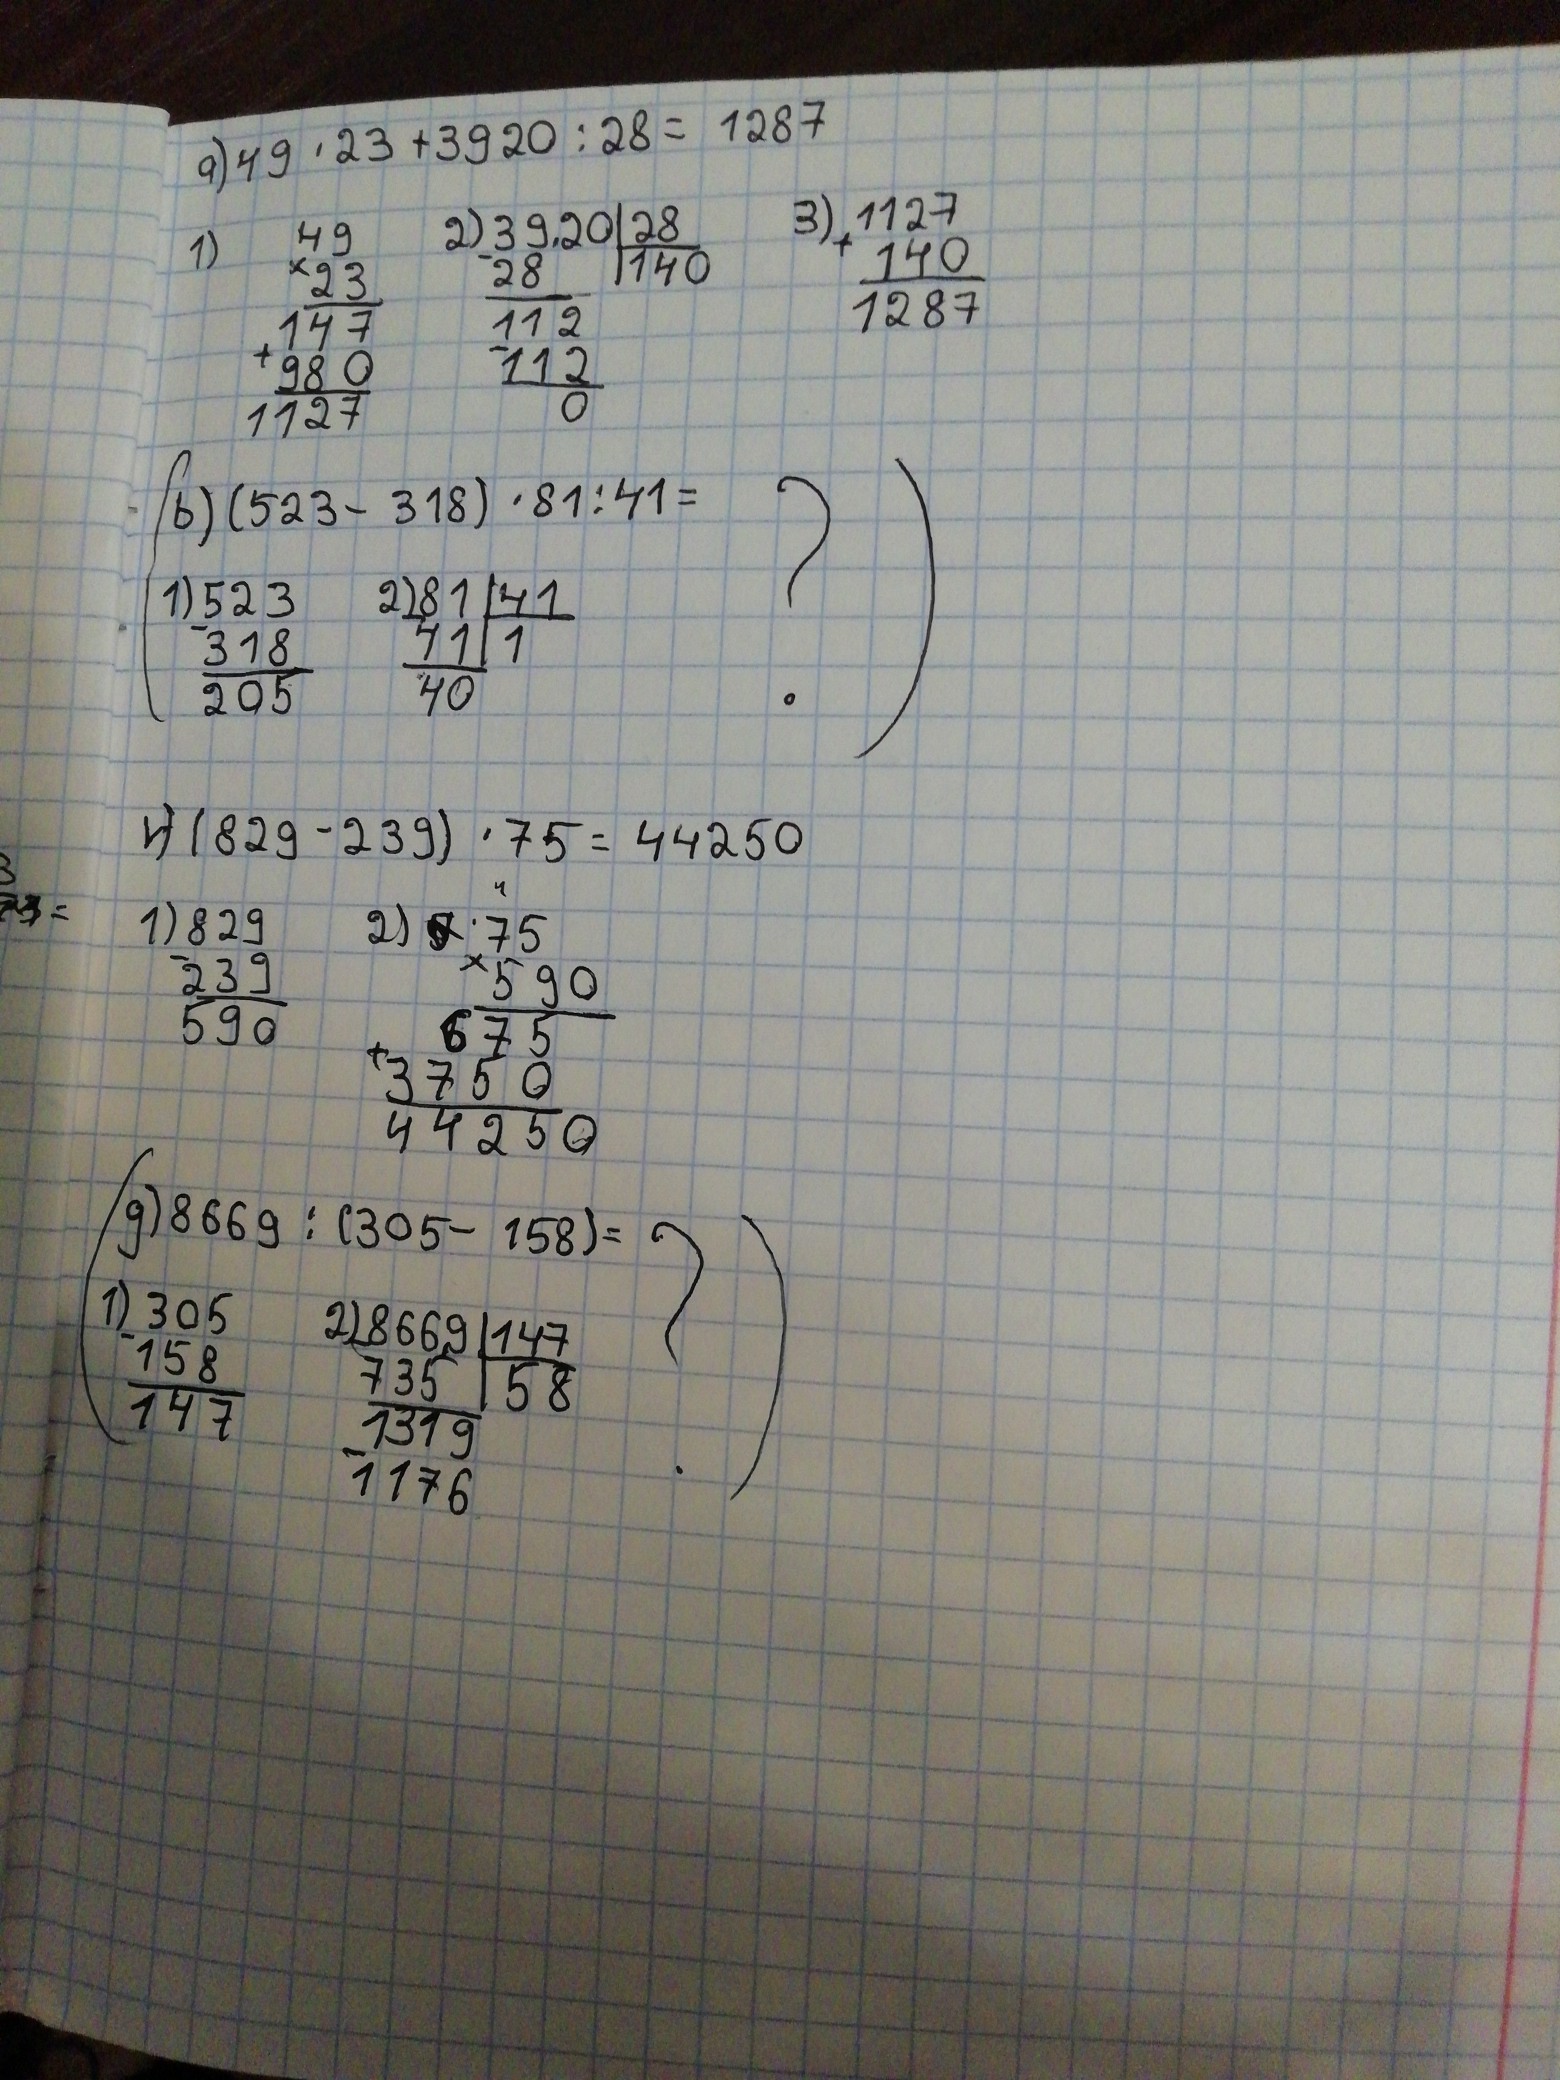 а) 49 · 23 + 3920 : 28 = 1287
1) 49 2) 39.20 28 3) 1127
× 23 - 28 140 + 140
147 112 1287
+ 980 - 112
1127 0
( б) (523 - 318) · 81 : 41 = ? )
1) 523 2) 81 41
- 318 41 1
205 40
г) (829 - 239) · 75 = 44250
1) 829 2) · 75
- 239 × 590
590 675
+ 3750
44250
( д) 8669 : (305 - 158) = ? )
1) 305 2) 8669 147
- 158 735 58
147 1319
- 1176